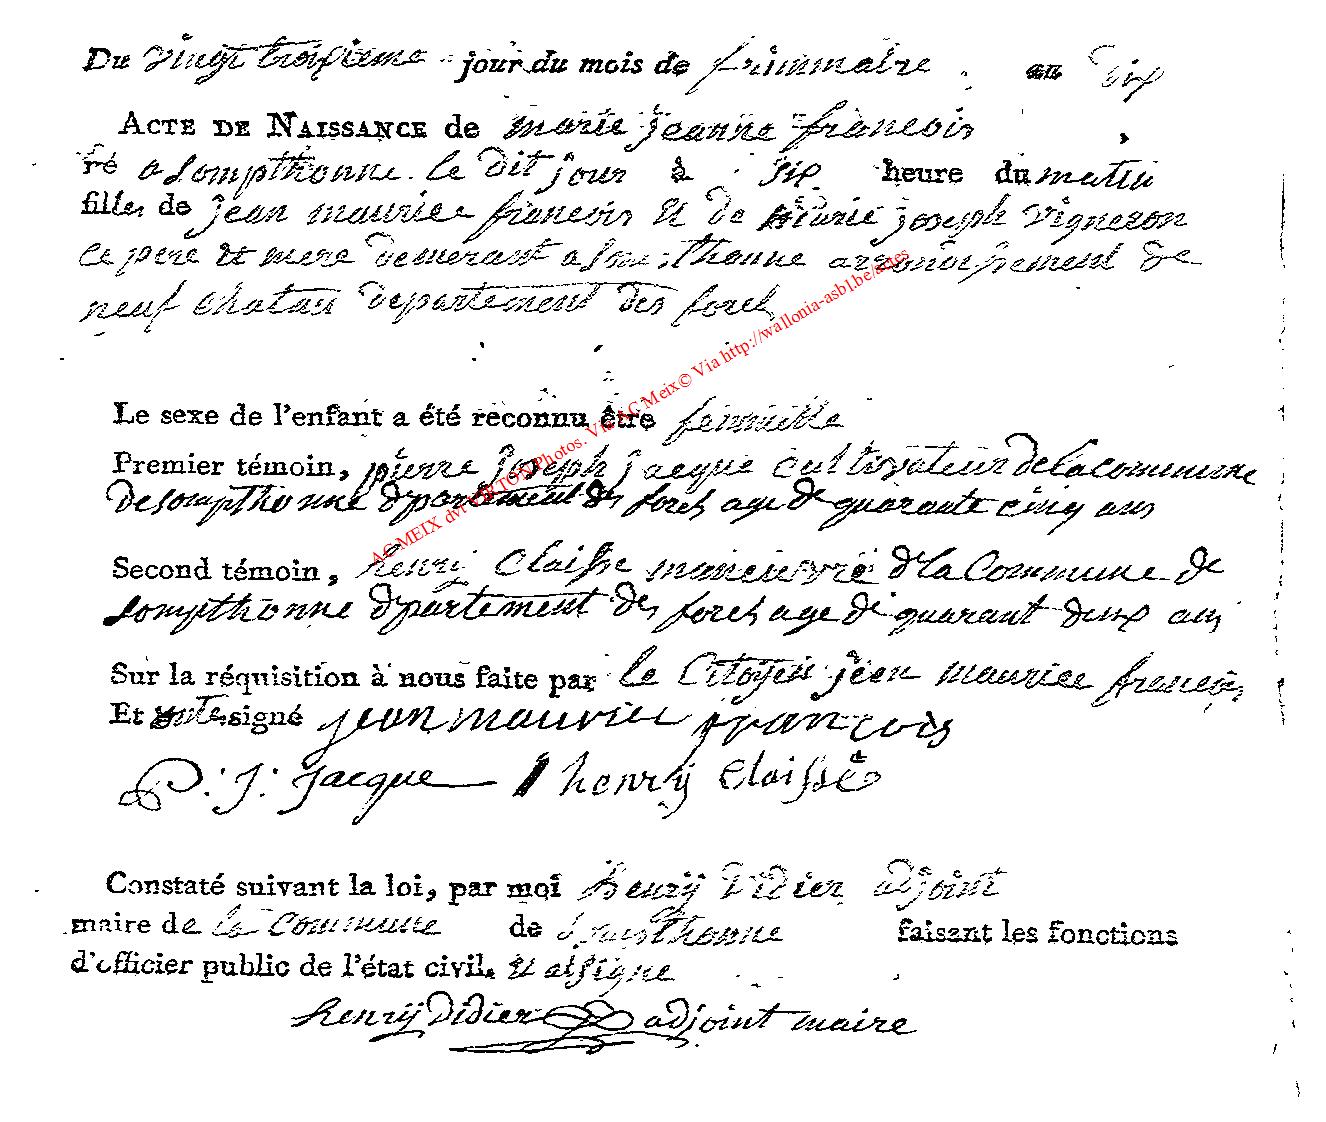 Du vingt troisieme jour du mois de frimmaire an dix
ACTE DE NAISSANCE de marie jeanne francois,
né a sompthonne le dit jour à six heure du matin
fille de jean maurice francois et de Marie joseph vigneron
ce pere et mere demerant a sompthonne arrondissement de
neuf chatau departement des foret
Le sexe de l'enfant a été reconnu être femmelle
Premier témoin, pierre joseph jacque cultivateur de la commune
de sompthonne dpartement des foret age de quarante cinq ans
Second témoin, henry Claisse maneuvre d la Commune de
sompthonne dpartement des foret age de quarant deux ans
Sur la réquisition à nous faite par le Citoyen jean maurice francois
Et signé jean maurice françois
P. J. Jacque henrÿ Claisse
Constaté suivant la loi, par moi henrÿ Didier adjoint
maire de la commune de sompthonne faisant les fonctions
d'officier public de l'état civil. et a signe
henrÿ Didier adjoint maire
AC MEIX dvt VIRTON Photos. Via AC Meix© Via http://wallonia-asbl.be/actes